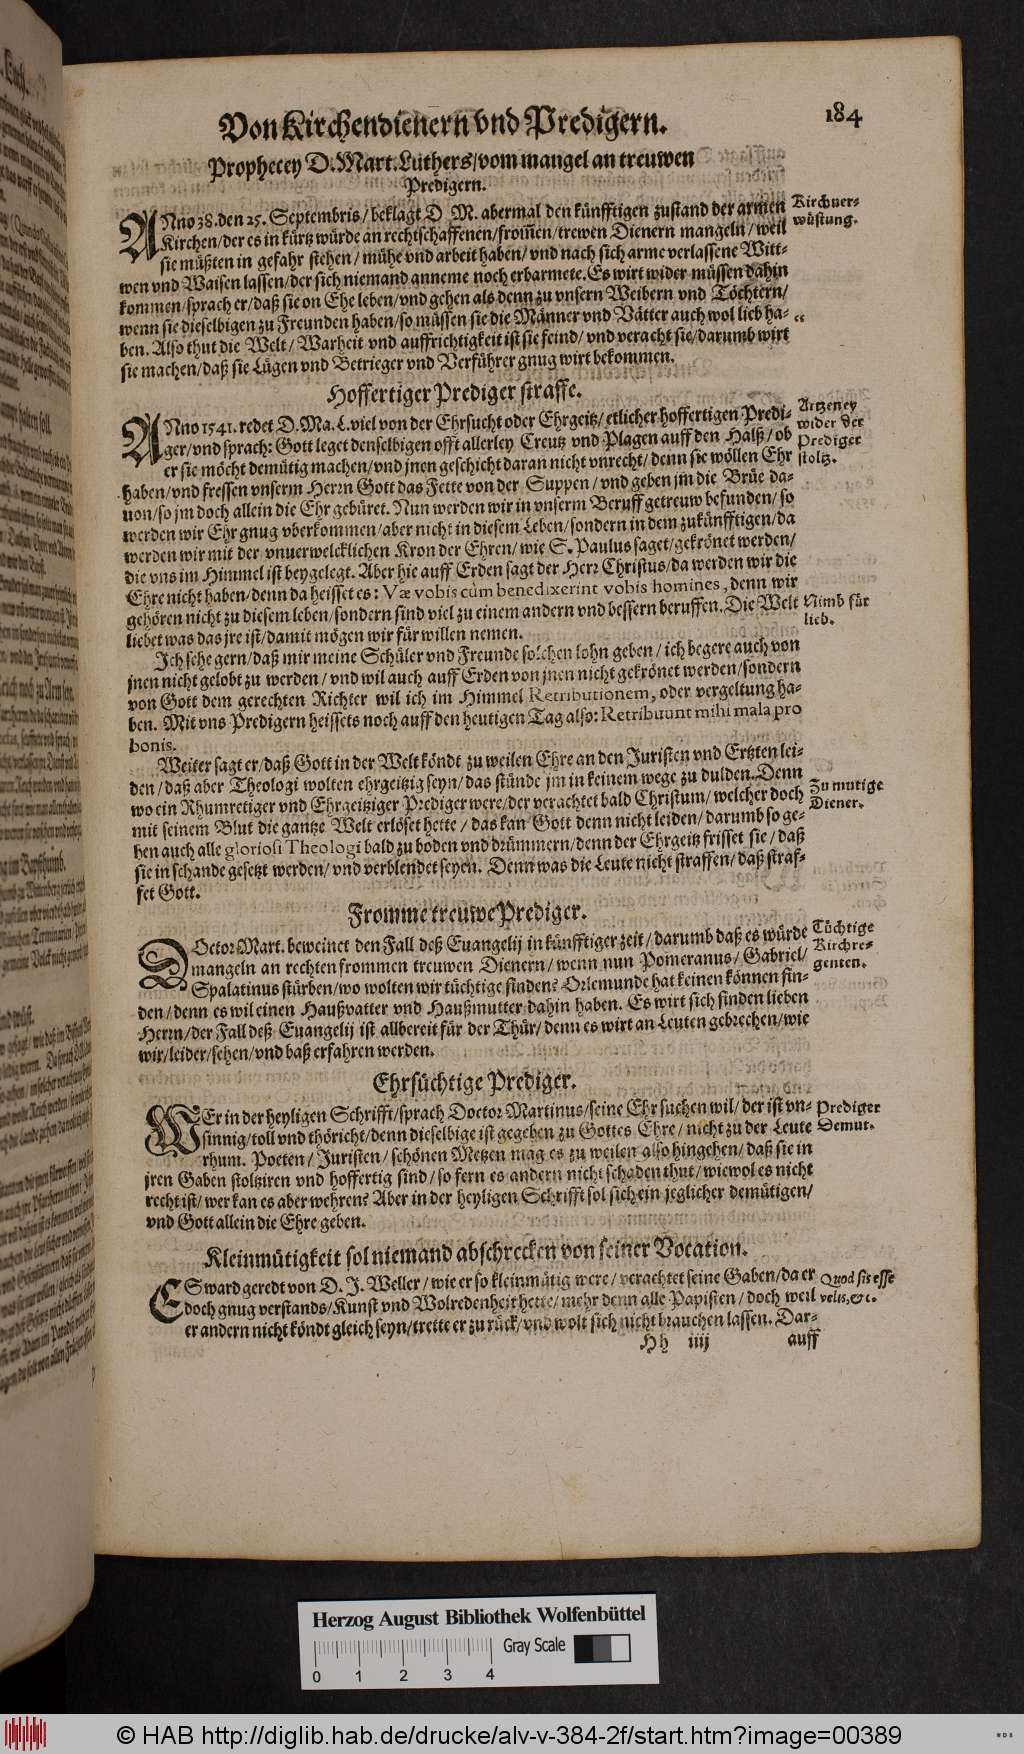 Von Kirchendienern vnd Predigern. 184
Prophecey D. Mart. Luthers/vom mangel an treuwen
Predigern.
ANno 38. den 25. Septembris/beklagt D M. abermal den künfftigen zustand der armen
Kirchen/der es in kürtz würde an rechtschaffenen/from̃en/trewen Dienern mangeln/weil
sie müßten in gefahr stehen/mühe vnd arbeit haben/vnd nach sich arme verlassene Witt-
wen vnd Waisen lassen/der sich niemand anneme noch erbarmete. Es wirt wider müssen dahin
kommen/sprach er/daß sie on Ehe leben/vnd gehen als denn zu vnsern Weibern vnd Töchtern/
wenn sie dieselbigen zu Freunden haben/so müssen sie die Männer vnd Vätter auch wol lieb ha-
ben. Also thut die Welt/Warheit vnd auffrichtigkeit ist sie feind/vnd veracht sie/darumb wirt
sie machen/daß sie Lügen vnd Betrieger vnd Verführer gnug wirt bekommen.
Kirchuer-
wüstung.
“
Hoffertiger Prediger straffe.
ANno 1541. redet D. Ma. L. viel von der Ehrsucht oder Ehrgeitz/etlicher hoffertigen Predi-
ger/vnd sprach: Gott leget denselbigen offt allerley Creutz vnd Plagen auff den Halß/ob
er sie möcht demütig machen/vnd jnen geschicht daran nicht vnrecht/denn sie wöllen Ehr
haben/vnd fressen vnserm Herrn Gott das Fette von der Suppen/vnd geben jm die Brüe da-
uon/so jm doch allein die Ehr gebüret. Nun werden wir in vnserm Beruff getreuw befunden/so
werden wir Ehr gnug vberkommen/aber nicht in diesem Leben/sondern in dem zukünfftigen/da
werden wir mit der vnuerwelcklichen Kron der Ehren/wie S. Paulus saget/gekrönet werden/
die vns im Himmel ist beygelegt. Aber hie auff Erden sagt der Herr Christus/da werden wir die
Ehre nicht haben/denn da heisset es: Væ vobis cùm benedixerint vobis homines, denn wir
gehören nicht zu diesem leben/sondern sind viel zu einem andern vnd bessern beruffen. Die Welt
liebet was das jre ist/damit mögen wir für willen nemen.
Artzeney
wider der
Prediger
stoltz.
Nimb für
lieb.
Ich sehe gern/daß mir meine Schüler vnd Freunde solchen lohn geben/ich begere auch von
jnen nicht gelobt zu werden/vnd wil auch auff Erden von jnen nicht gekrönet werden/sondern
von Gott dem gerechten Richter wil ich im Himmel Retributionem, oder vergeltung ha-
ben. Mit vns Predigern heissets noch auff den heutigen Tag also: Retribuunt mihi mala pro
bonis.
Weiter sagt er/daß Gott in der Welt köndt zu weilen Ehre an den Juristen vnd Ertzten lei-
den/daß aber Theologi wolten ehrgeitzig seyn/das stünde jm in keinem wege zu dulden. Denn
wo ein Rhumretiger vnd Ehrgeitziger Prediger were/der verachtet bald Christum/welcher doch
mit seinem Blut die gantze Welt erlöset hette/das kan Gott denn nicht leiden/darumb so ge-
hen auch alle gloriosi Theologi bald zu boden vnd drümmern/denn der Ehrgeitz frisset sie/daß
sie in schande gesetzt werden/vnd verblendet seyen. Denn was die Leute nicht straffen/daß straf-
fet Gott.
Zu mutige
Diener.
Fromme treuwe Prediger.
DOctor Mart. beweinet den Fall deß Euangelij in künfftiger zeit/darumb daß es würde
mangeln an rechten frommen treuwen Dienern/wenn nun Pomeranus/Gabriel/
Spalatinus stürben/wo wolten wir tüchtige finden? Orlemunde hat keinen können fin-
den/denn es wil einen Haußvatter vnd Haußmutter dahin haben. Es wirt sich finden lieben
Herrn/der Fall deß Euangelij ist allbereit für der Thür/denn es wirt an Leuten gebrechen/wie
wir/leider/sehen/vnd baß erfahren werden.
Tüchtige
Kirchre-
genten.
Ehrsüchtige Prediger.
WEr in der heyligen Schrifft/sprach Doctor Martinus/seine Ehr suchen wil/der ist vn-
sinnig/toll vnd thöricht/denn dieselbige ist gegeben zu Gottes Ehre/nicht zu der Leute
rhum. Poeten/Juristen/schönen Metzen mag es zu weilen also hingehen/daß sie in
jren Gaben stoltziren vnd hoffertig sind/so fern es andern nicht schaden thut/wiewol es nicht
recht ist/wer kan es aber wehren? Aber in der heyligen Schrifft sol sich ein jeglicher demütigen/
vnd Gott allein die Ehre geben.
Prediger
Demut.
Kleinmütigkeit sol niemand abschrecken von seiner Vocation.
ES ward geredt von D. J. Weller/wie er so kleinmütig were/verachtet seine Gaben/da er
doch gnug verstands/Kunst vnd Wolredenheit hette/mehr denn alle Papisten/doch weil
er andern nicht köndt gleich seyn/trette er zu rück/vnd wolt sich nicht brauchen lassen. Dar-
Quod sis esse
velis, &c.
Hh iiij auff
Herzog August Bibliothek Wolfenbüttel
Gray Scale
0 1 2 3 4
© HAB http://diglib.hab.de/drucke/alv-v-384-2f/start.htm?image=00389